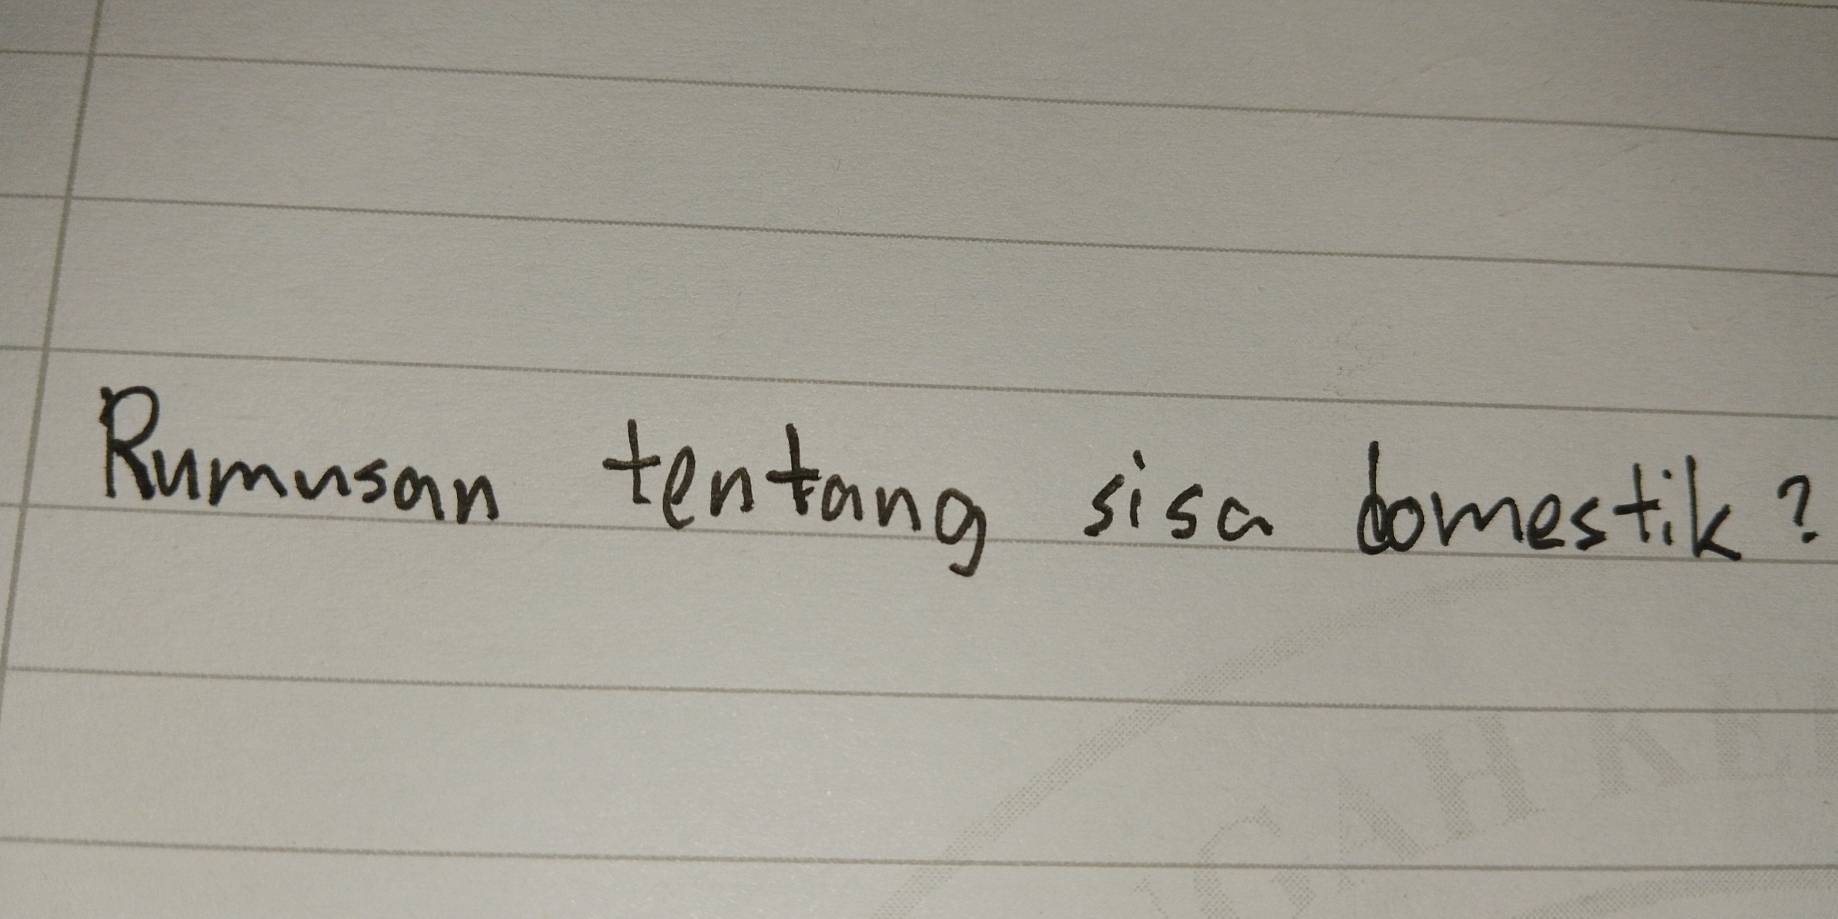 Rumusan tentang sisa domestik?
GAH KE